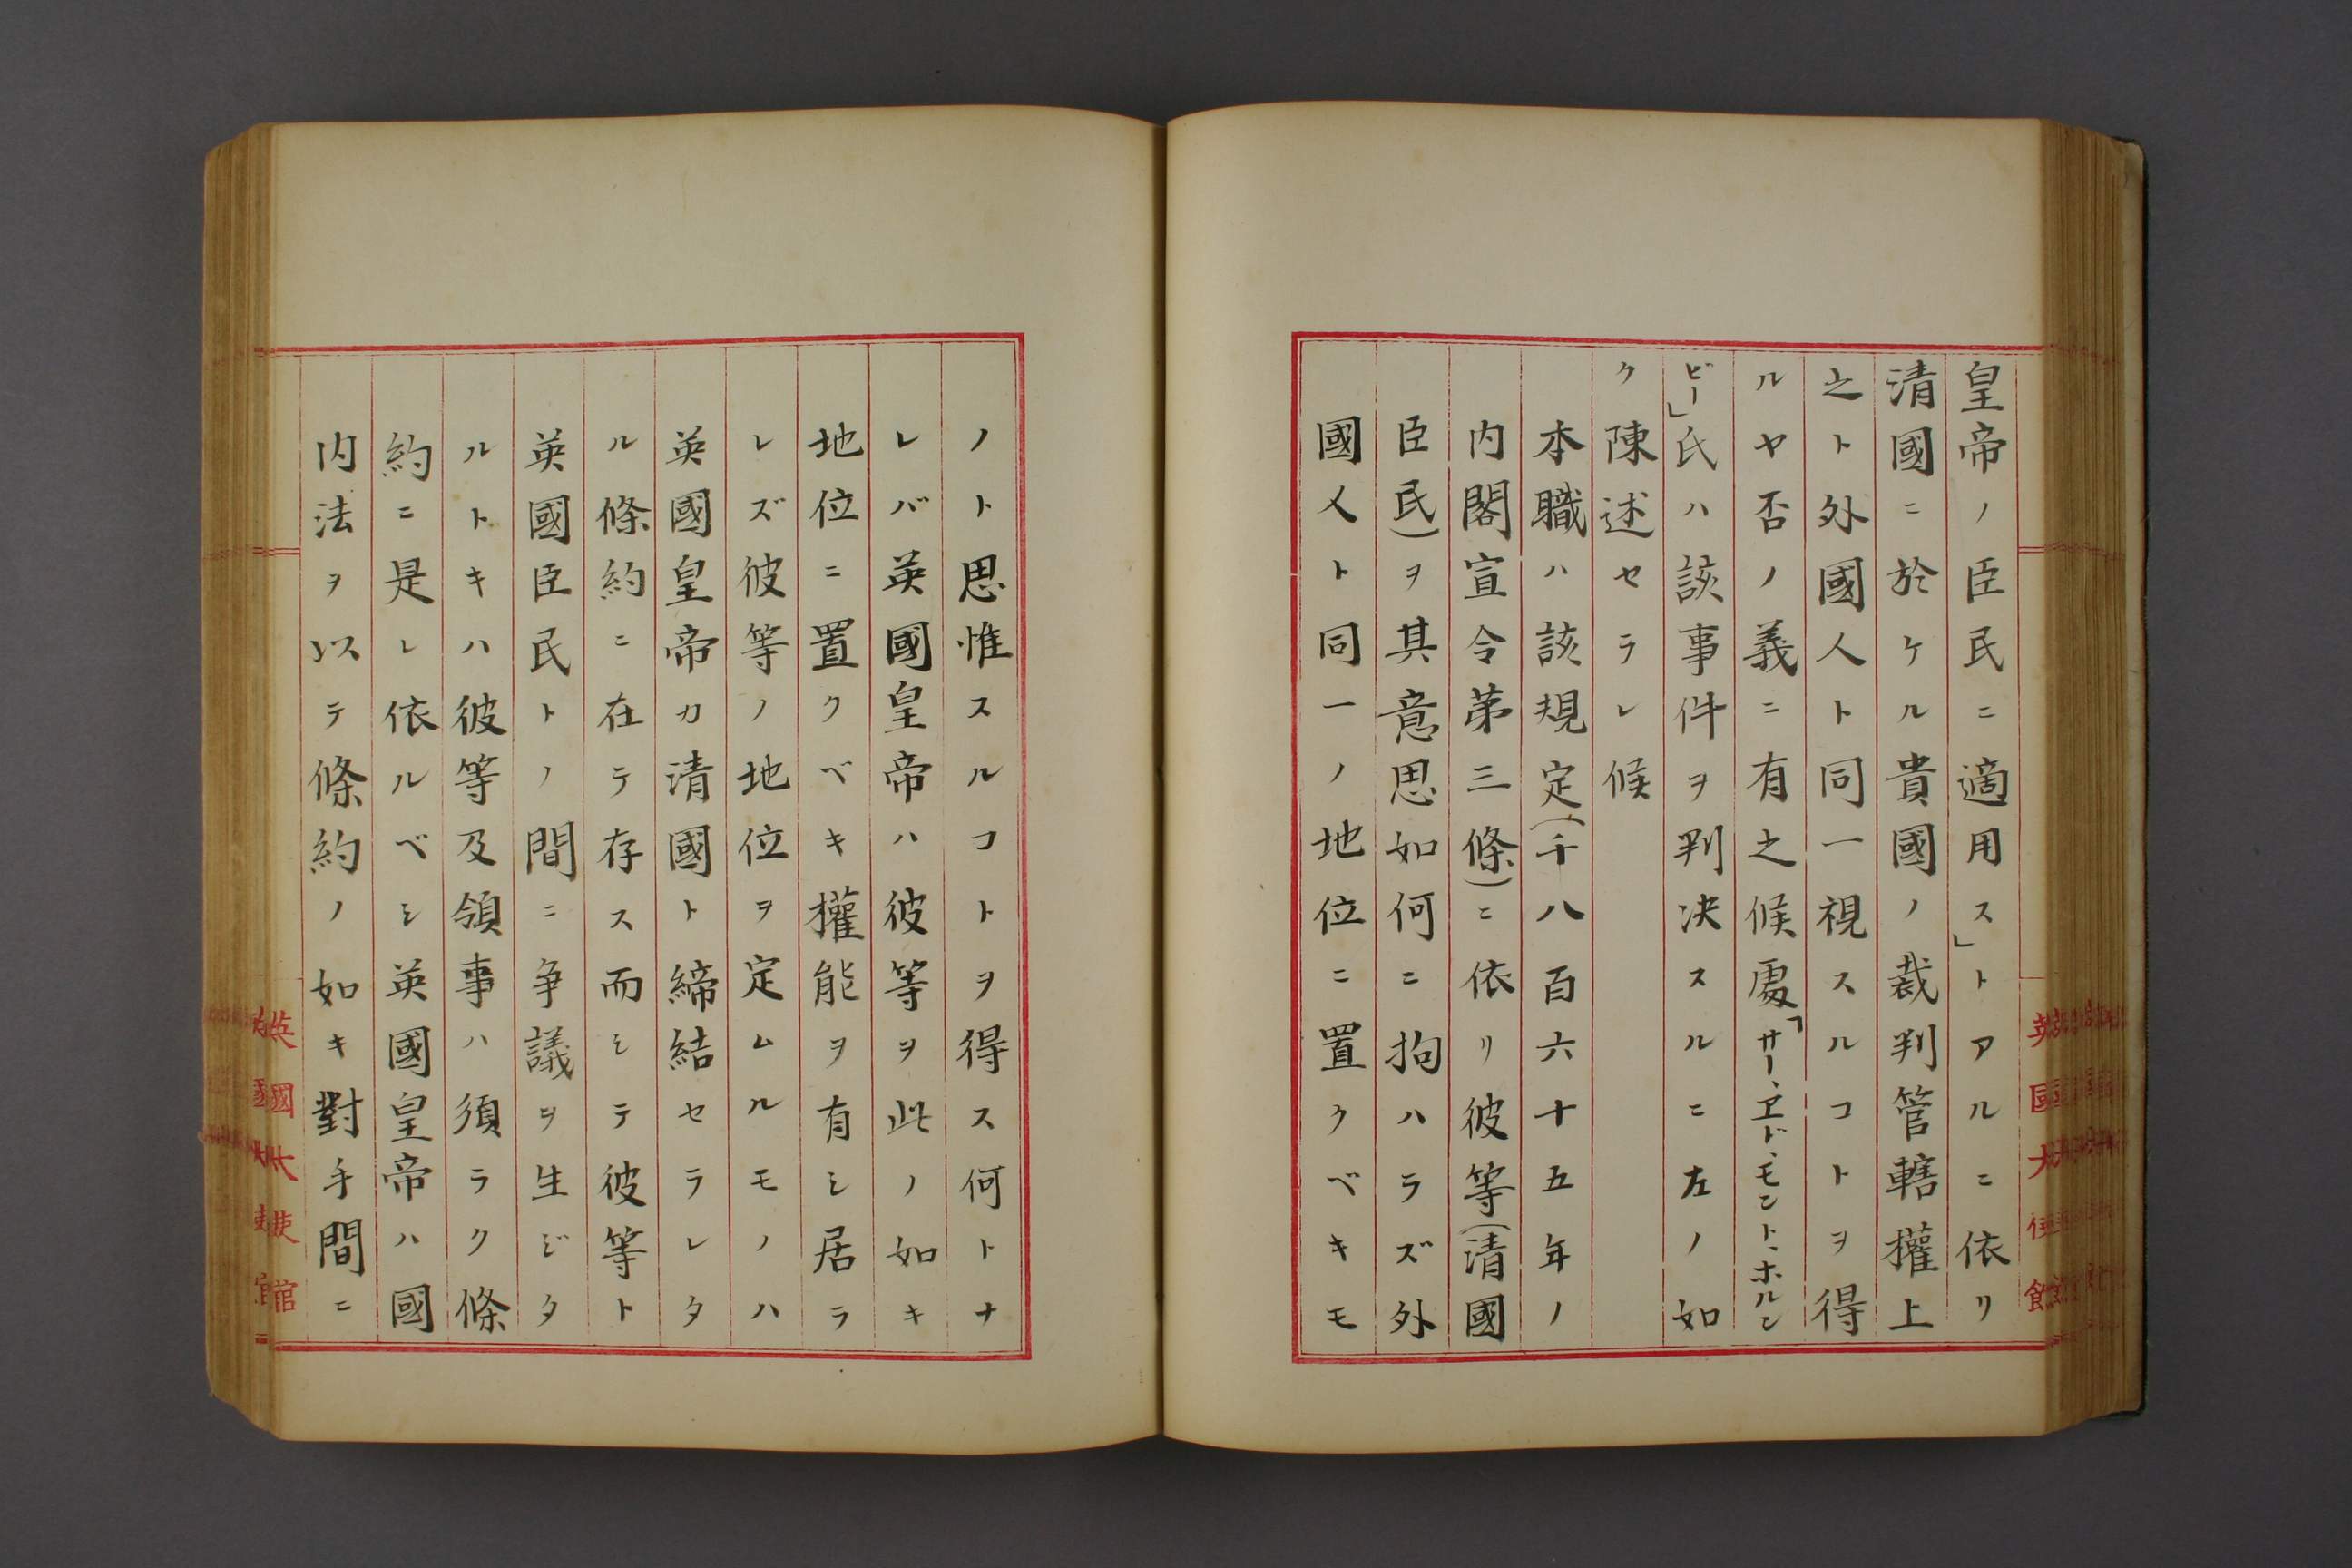 皇帝ノ臣民ニ適用ス」トアルニ依リ
清國ニ於ケル貴國ノ裁判管轄權上
之ト外國人ト同一視スルコトヲ得
ルヤ否ノ義ニ有之候處「サー、エド、モント、ホルン
ビー」氏ハ該事件ヲ判决スルニ左ノ如
ク陳述セラレ候
本職ハ該規定(千八百六十五年ノ
内閣宣令第三條)ニ依リ彼等(清國
臣民)ヲ其意思如何ニ拘ハラズ外
國人ト同一ノ地位ニ置クベキモ
ノト思惟スルコトヲ得ス何トナ
レバ英國皇帝ハ彼等ヲ此ノ如キ
地位ニ置クベキ權能ヲ有シ居ラ
レズ彼等ノ地位ヲ定ムルモノハ
英國皇帝カ清國ト締結セラレタ
ル條約ニ在テ存ス而シテ彼等ト
英國臣民トノ間ニ争議ヲ生ジタ
ルトキハ彼等及領事ハ須ラク條
約ニ是レ依ルベシ英國皇帝ハ國
内法ヲ以テ條約ノ如キ對手間ニ
英國大使館